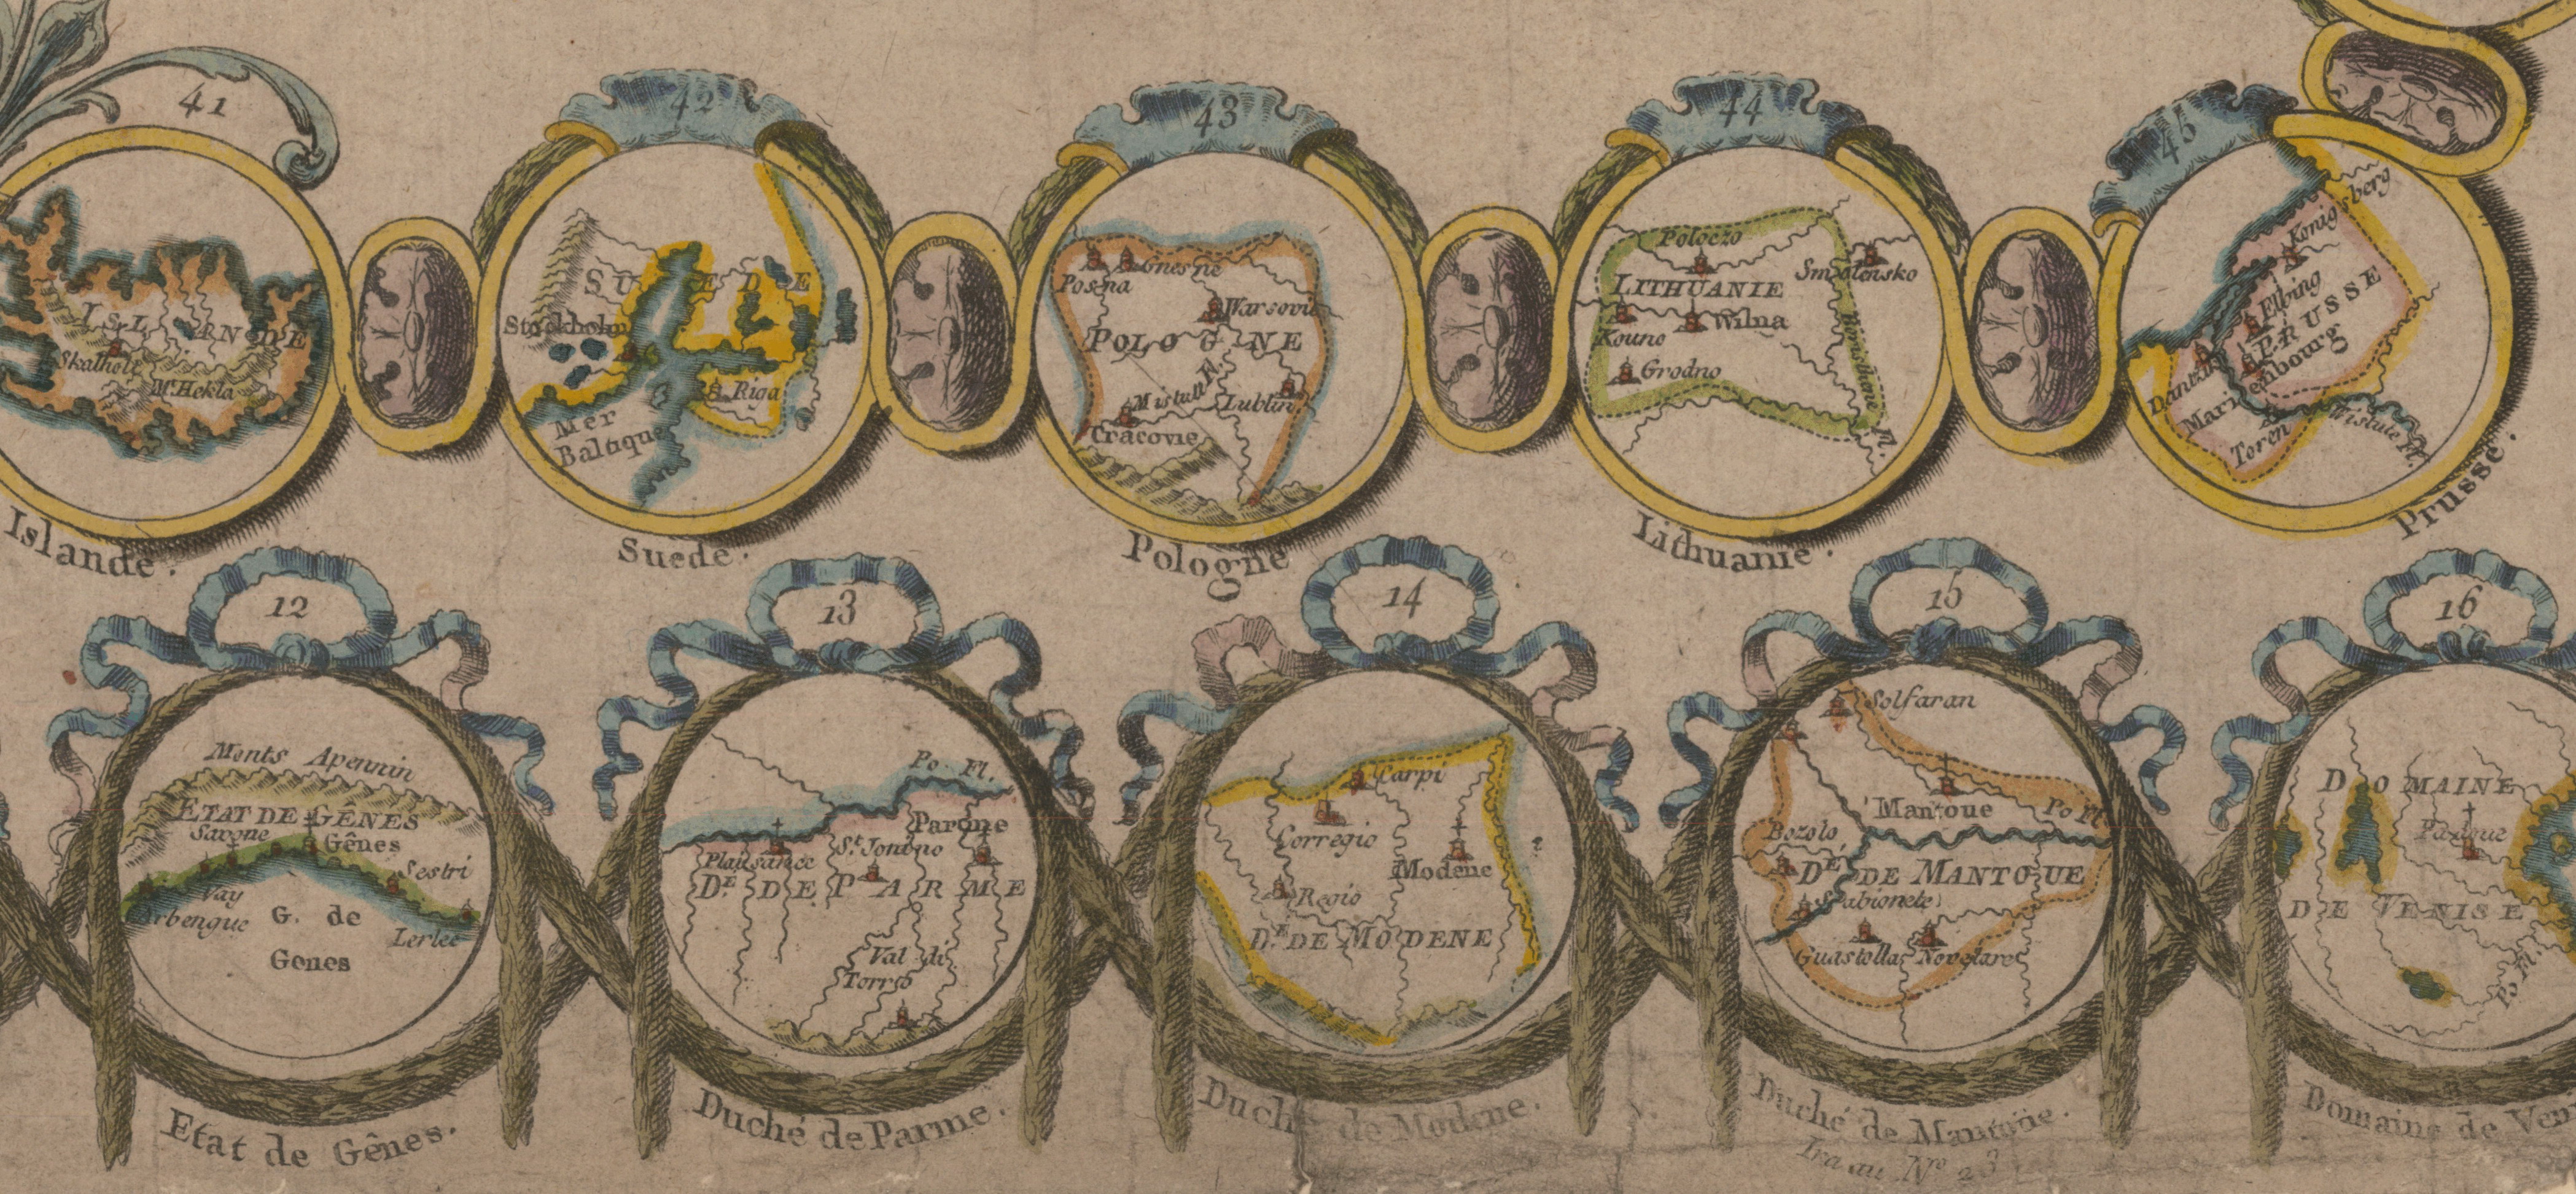 41
ISLANDE
Skalholt
Mt. Hekla
Islande.
42
SUEDE
Stockholm
Riga
Mer
Baltique
Suede.
43
Posna
Gnesne
Warsovie
POLOGNE
Mistull R.
Lublin
Cracovie
Pologne
44
Poloczo
Smolensko
LITHUANIE
Kouno
Wilna
Grodno
Boristhene Fl.
Lithuanie.
45
Konigsberg
Elbing
PRUSSE
Dantzik
Marienbourg
Toren
Wistule Fl.
Prusse.
12
Monts Apennin
ETAT DE GÊNES
Savone
Gênes
Sestri
Vay
Arbengue
G. de
Genes
Lerlee
Etat de Gênes.
13
Po Fl.
Parme
Plaisance
St. Jonino
DE. DE PARME
Val di
Torro
Duché de Parme.
14
Carpi
Corregio
Modene
Regio
DE. DE MODENE
Duché de Modene.
15
Solfaran
Mantoue
Po Fl.
Bozolo
DE. DE MANTOUE
Sabionete
Guastolla
Novelare
Duché de Mantoüe.
Ira au No 23
16
DOMAINE
Padoue
DE VENISE
Po Fl.
Domaine de Ven